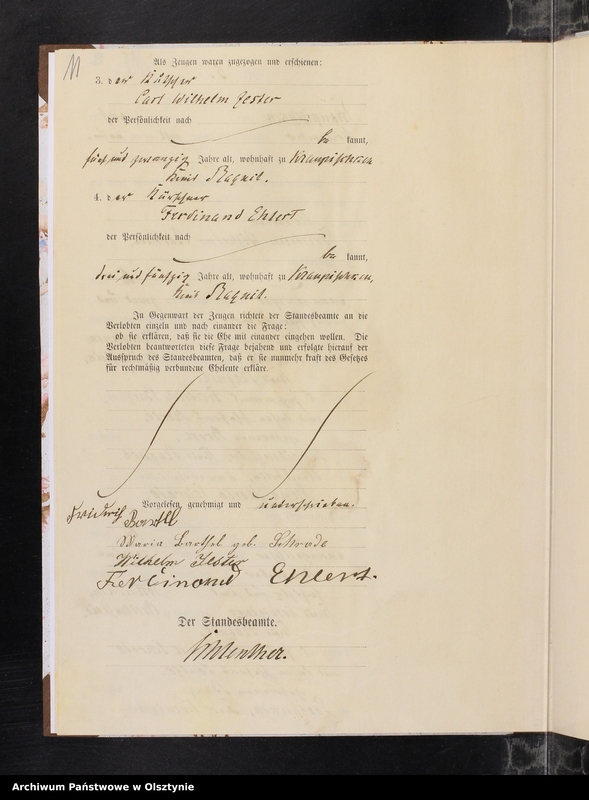 11
Als Zeugen waren zugezogen und erschienen:
3. der
Carl Wilhelm Jester
der Persönlichkeit nach
be kannt,
fünf und zwanzig Jahre alt, wohnhaft zu Kraupischken
Kreis Ragnit.
4. der
Ferdinand Ehlert
der Persönlichkeit nach
be kannt,
drei und fünfzig Jahre alt, wohnhaft zu Kraupischken,
Kreis Ragnit.
In Gegenwart der Zeugen richtete der Standesbeamte an die
Verlobten einzeln und nach einander die Frage:
ob sie erklären, daß sie die Ehe mit einander eingehen wollen. Die
Verlobten beantworteten diese Frage bejahend und erfolgte hierauf der
Ausspruch des Standesbeamten, daß er sie nunmehr kraft des Gesetzes
für rechtmäßig verbundene Eheleute erkläre.
Vorgelesen, genehmigt und unterschrieben.
Friedrich
Maria Barthel geb. Schrade
Wilhelm Jester
Ferdinand Ehlert.
Der Standesbeamte.
Archiwum Państwowe w Olsztynie